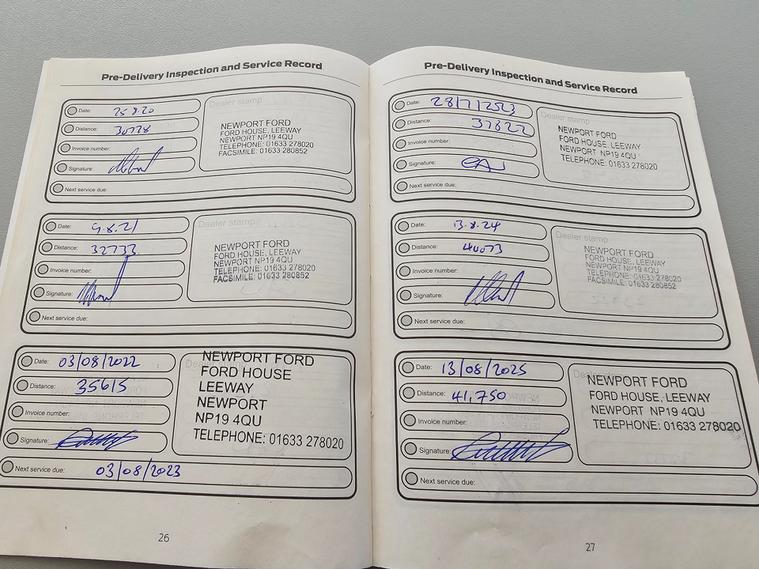 Pre-Delivery Inspection and Service Record
Date: 25.8.20
Dealer stamp
Distance: 30728
Invoice number:
Signature:
NEWPORT FORD
FORD HOUSE, LEEWAY
NEWPORT NP19 4QU
TELEPHONE: 01633 278020
FACSIMILE: 01633 280852
Next service due:
Date: 9.8.21
Dealer stamp
Distance: 32733
Invoice number:
Signature:
NEWPORT FORD
FORD HOUSE, LEEWAY
NEWPORT NP19 4QU
TELEPHONE: 01633 278020
FACSIMILE: 01633 280852
Next service due:
Date: 03/08/2022
Distance: 35615
Invoice number:
Signature:
NEWPORT FORD
FORD HOUSE
LEEWAY
NEWPORT
NP19 4QU
TELEPHONE: 01633 278020
Next service due: 03/08/2023
26
Pre-Delivery Inspection and Service Record
Date: 28/7/2523
Dealer stamp
Distance: 37822
Invoice number:
Signature:
NEWPORT FORD
FORD HOUSE, LEEWAY
NEWPORT NP19 4QU
TELEPHONE: 01633 278020
Next service due:
Date: 13.8.24
Dealer stamp
Distance: 40073
Invoice number:
Signature:
NEWPORT FORD
FORD HOUSE, LEEWAY
NEWPORT NP19 4QU
TELEPHONE: 01633 278020
FACSIMILE: 01633 280852
Next service due:
Date: 13/08/2025
Distance: 41,750
Invoice number:
Signature:
NEWPORT FORD
FORD HOUSE, LEEWAY
NEWPORT NP19 4QU
TELEPHONE: 01633 278020
Next service due:
27